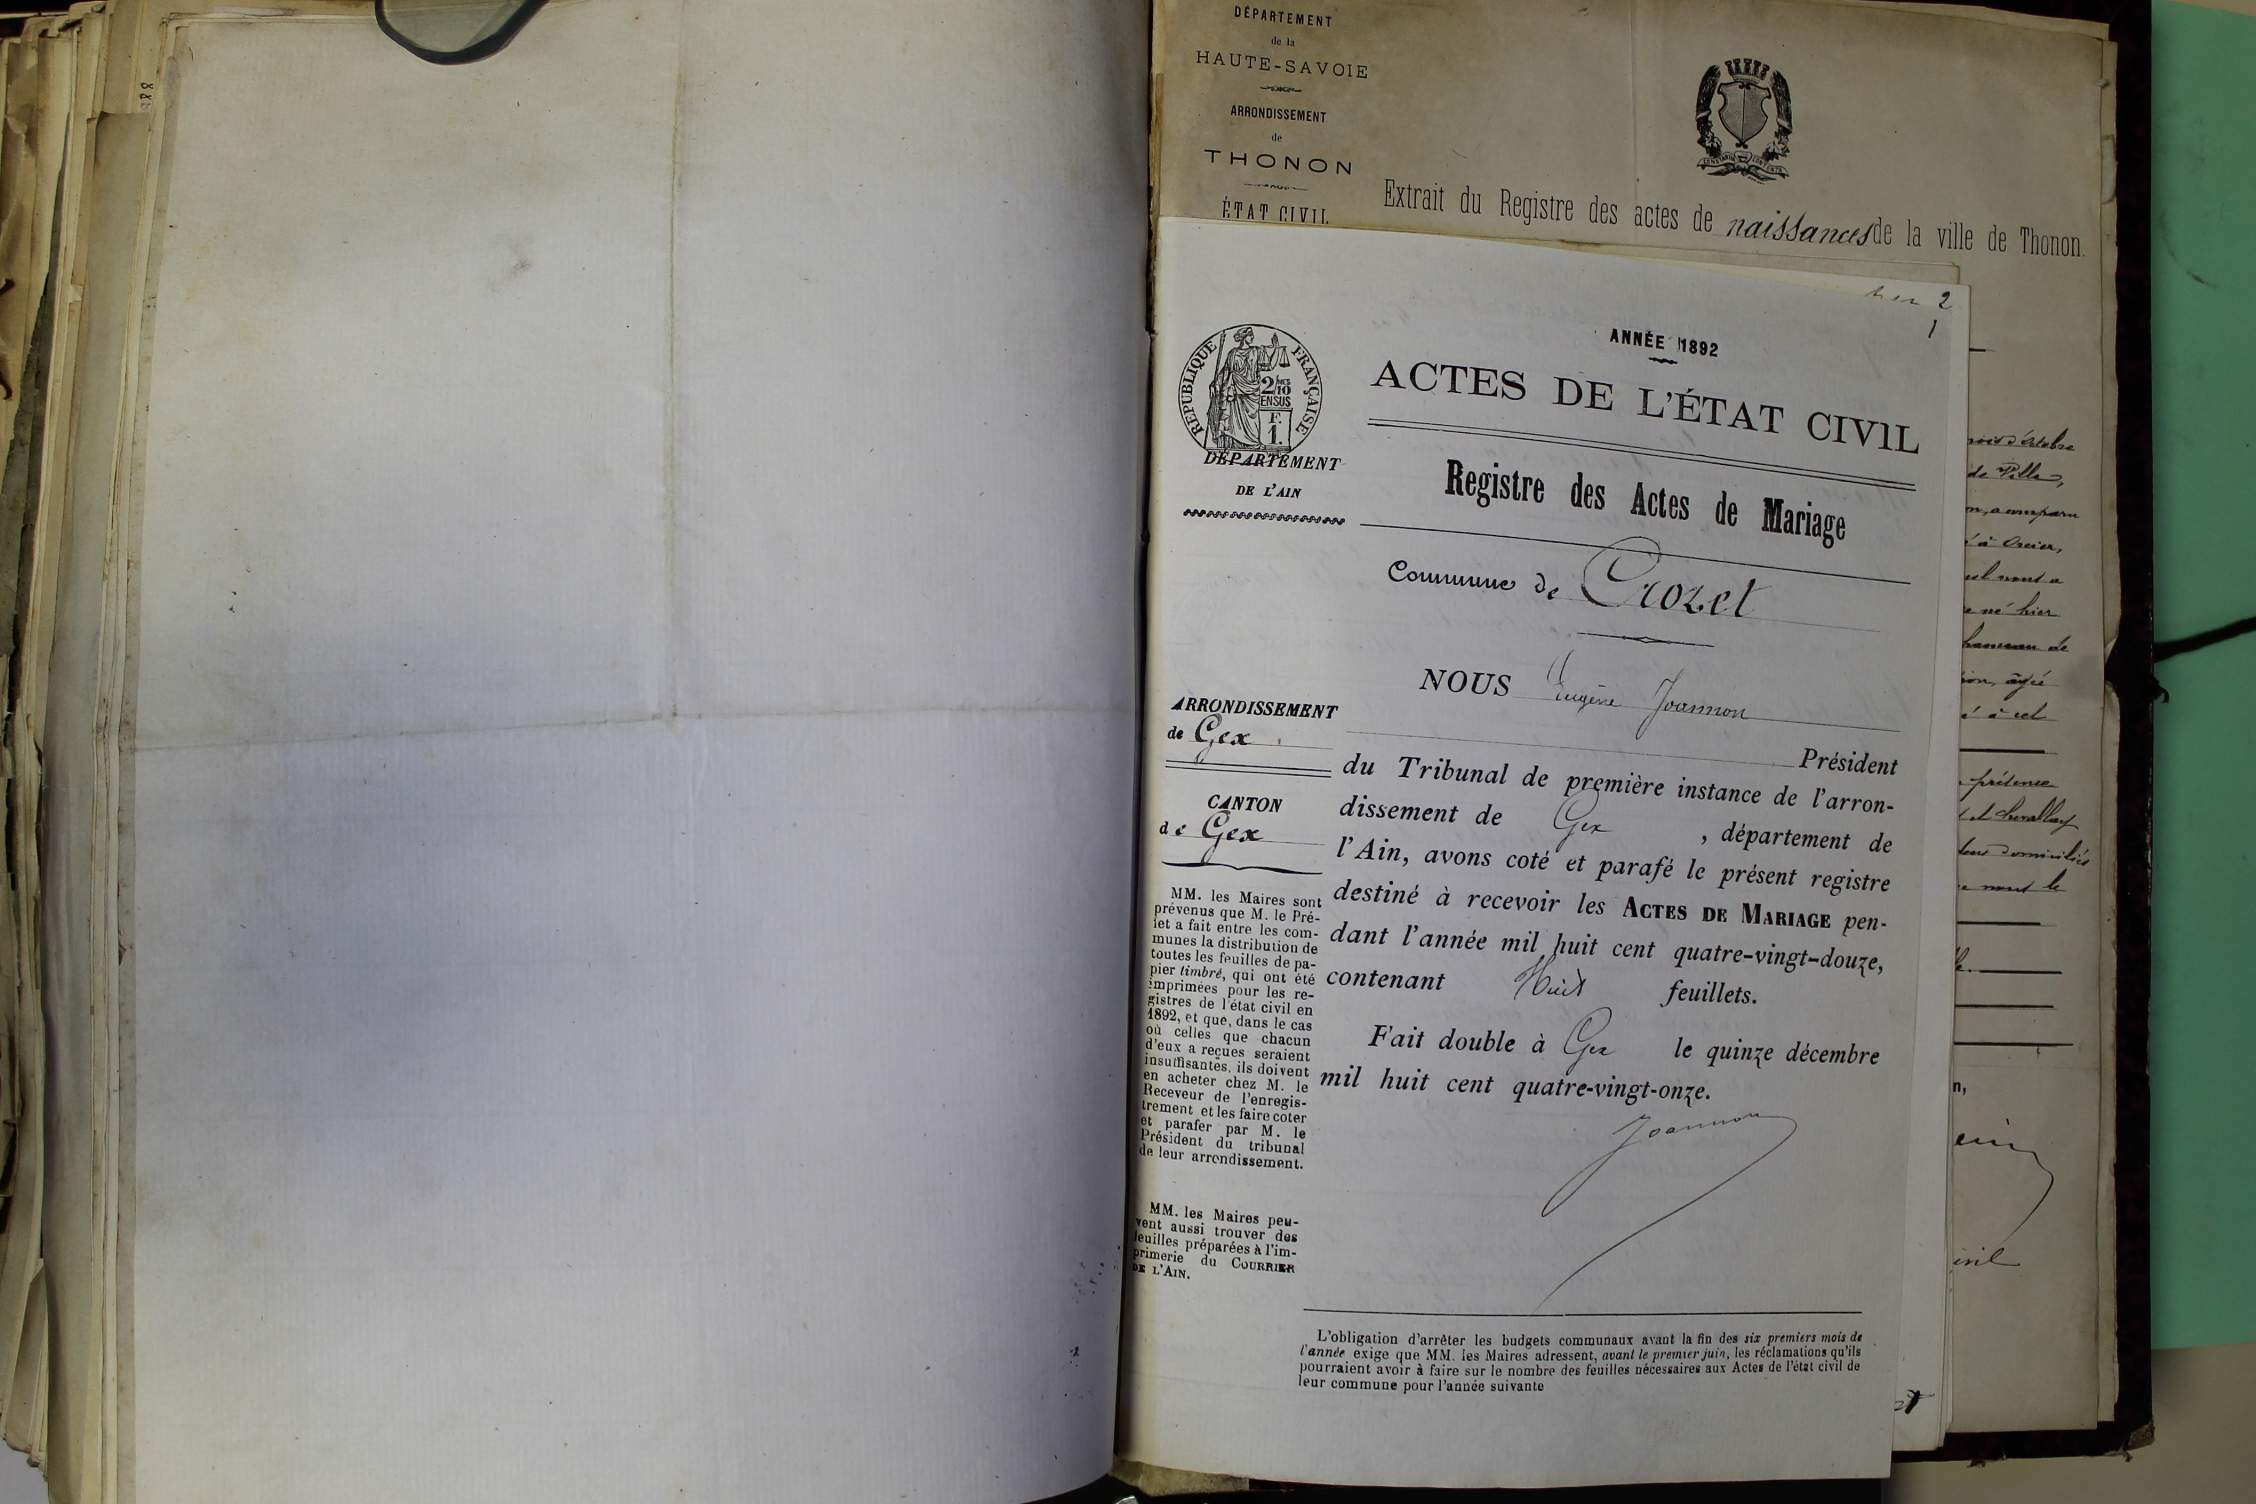 888
DÉPARTEMENT
de la
HAUTE-SAVOIE
ARRONDISSEMENT
de
THONON
ÉTAT CIVIL
Extrait du Registre des actes de naissances de la ville de Thonon.
2
1
ANNÉE 1892
ACTES DE L'ÉTAT CIVIL
RÉPUBLIQUE FRANÇAISE
2/10
EN SUS
F.
1.
DÉPARTEMENT
DE L'AIN
Registre des Actes de Mariage
Commune de Crozet
NOUS Eugène Joannon
Président
du Tribunal de première instance de l'arron-
dissement de Gex , département de
l'Ain, avons coté et parafé le présent registre
destiné à recevoir les ACTES DE MARIAGE pen-
dant l'année mil huit cent quatre-vingt-douze,
contenant Huit feuillets.
Fait double à Gex le quinze décembre
mil huit cent quatre-vingt-onze.
Joannon
ARRONDISSEMENT
de Gex
CANTON
de Gex
MM. les Maires sont
prévenus que M. le Pré-
fet a fait entre les com-
munes la distribution de
toutes les feuilles de pa-
pier timbré, qui ont été
imprimées pour les re-
gistres de l'état civil en
1892, et que, dans le cas
où celles que chacun
d'eux a reçues seraient
insuffisantes, ils doivent
en acheter chez M. le
Receveur de l'enregis-
trement et les faire coter
et parafer par M. le
Président du tribunal
de leur arrondissement.
MM. les Maires peu-
vent aussi trouver des
feuilles préparées à l'im-
primerie du COURRIER
DE L'AIN.
L'obligation d'arrêter les budgets communaux avant la fin des six premiers mois de
l'année exige que MM. les Maires adressent, avant le premier juin, les réclamations qu'ils
pourraient avoir à faire sur le nombre des feuilles nécessaires aux Actes de l'état civil de
leur commune pour l'année suivante
mois d'octobre
de Ville,
on, a comparu
à Orcier,
uel nous a
né hier
hameau de
âgé
é à cet
présence
et Chevallay
domiciliés
nous le
n,
ivil